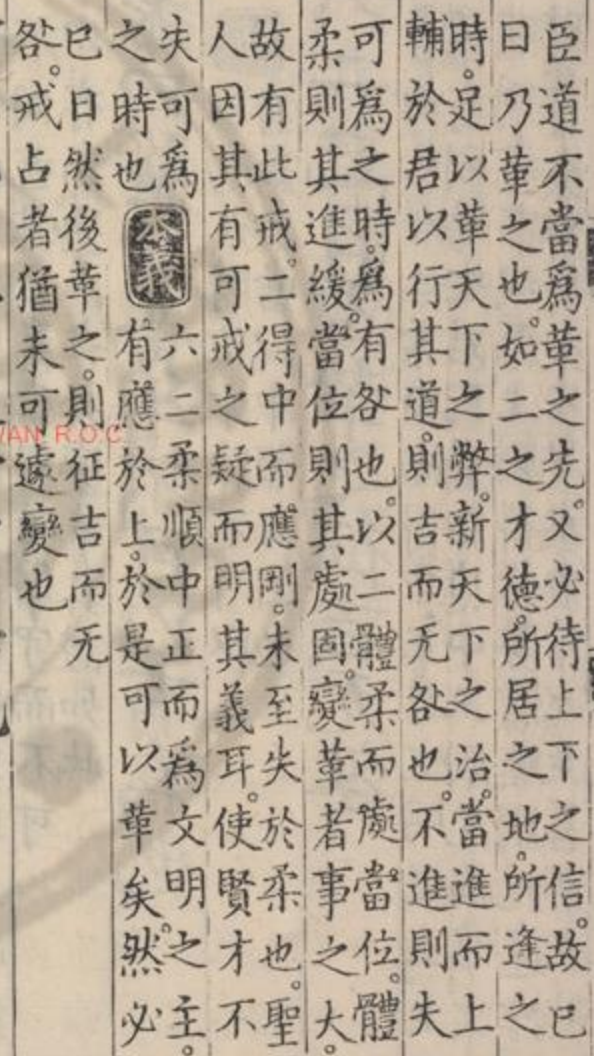 臣道不當爲革之先。又必待上下之信。故已
日乃革之也。如二之才德。所居之地。所逢之
時。足以革天下之弊。新天下之治。當進而上
輔於君。以行其道。則吉而无咎也。不進則失
可爲之時。爲有咎也。以二體柔而處當位。體
柔則其進緩。當位則其處固。變革者事之大。
故有此戒。二得中而應剛。未至失於柔也。聖
人因其有可戒之疑而明其義耳。使賢才不
失可爲
之時也
本義
六二柔順中正而爲文明之主。
有應於上。於是可以革矣。然必
已日然後革之。則征吉而无
咎。戒占者猶未可遽變也
WAN R.O.C